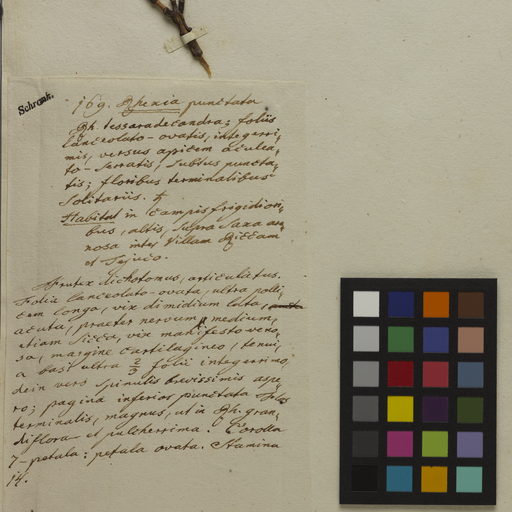 Schrank.
169. Rhexia punctata
Rh. tessaradecandra; foliis
lanceolato-ovatis, integerri,
mis, versus apicem aculea,
to-serratis, subtus puncta,
tis; floribus terminalibus
solitariis. ♄
Habitat in campis frigidiori,
bus, altis, supra saxa are,
nosa inter Villam Riccam
et Tejuco.
Frutex dichotomus, articulatus.
Folia lanceolato-ovata, ultra polli,
cem longa, vix dimidium lata,
acuta, praeter nervum medium,
etiam sicca, vix manifesto veno,
sa, margine cartilagineo, tenui,
a basi ultra 2/3 folii integerrimo,
dein vers spinulis brevissimis aspe,
ro; pagina inferior punctata. Flos
terminalis, magnus, ut in Rh. gran,
diflora et pulcherrima. Corolla
7-petala: petala ovata. Stamina
14.